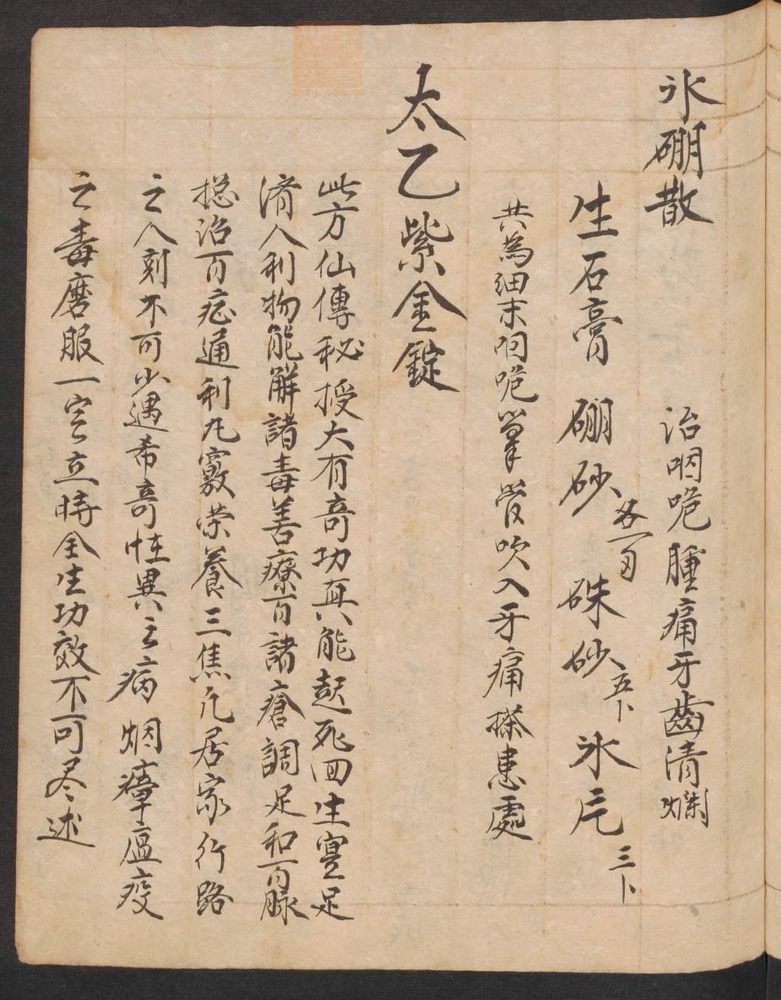 氷硼散　治咽喉腫痛牙齒清爛
生石膏　硼砂各一両　硃砂五卜　氷片三卜
共為細末咽喉筆管吹入牙痛搽患處
太乙紫金錠
此方仙傳秘授大有竒功真能起死回生寔足
濟人利物能觧諸毒善療百諸瘡調足和百脉
捴治百症通利九竅荣養三焦凢居家行路
之人刻不可少遇希竒怪異之病烟瘴瘟疫
之毒磨服一定立時全生功效不可尽述